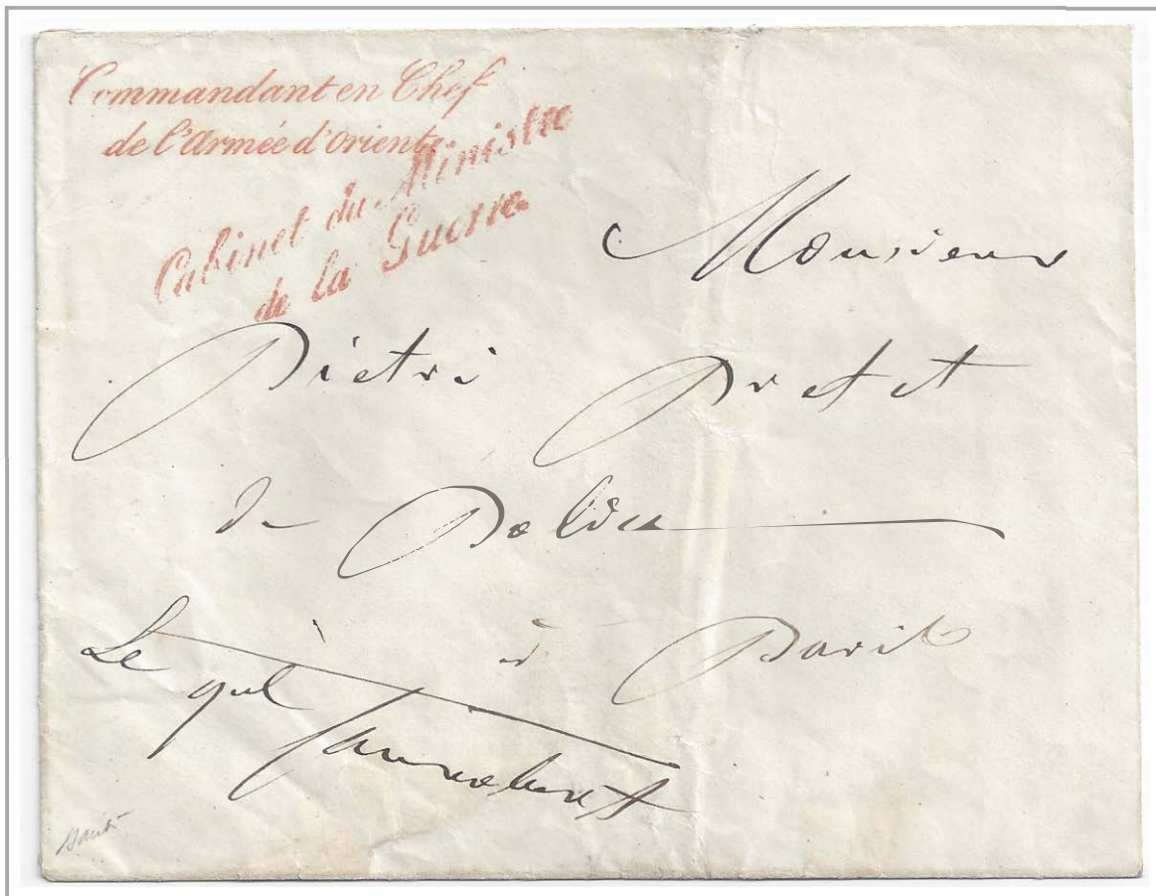 Commandant en Chef
de l'Armée d'Orient.
Cabinet du Ministre
de la Guerre
Monsieur
Pietri Prefet
de Police
à Paris
Le gal Canrobert